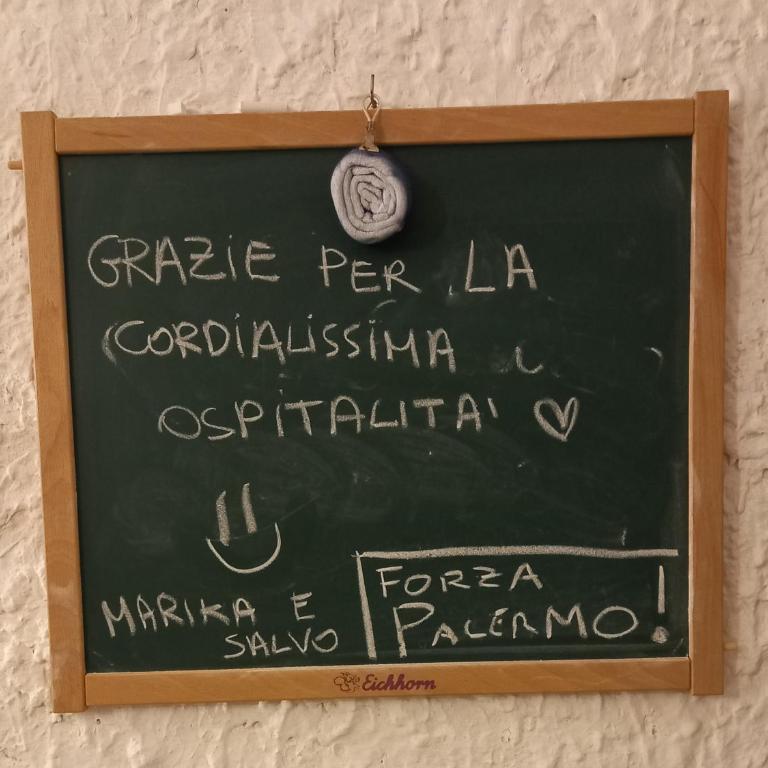 GRAZIE PER LA
CORDIALISSIMA
OSPITALITA'
MARIKA E
SALVO
FORZA
PALERMO!
Eichhorn